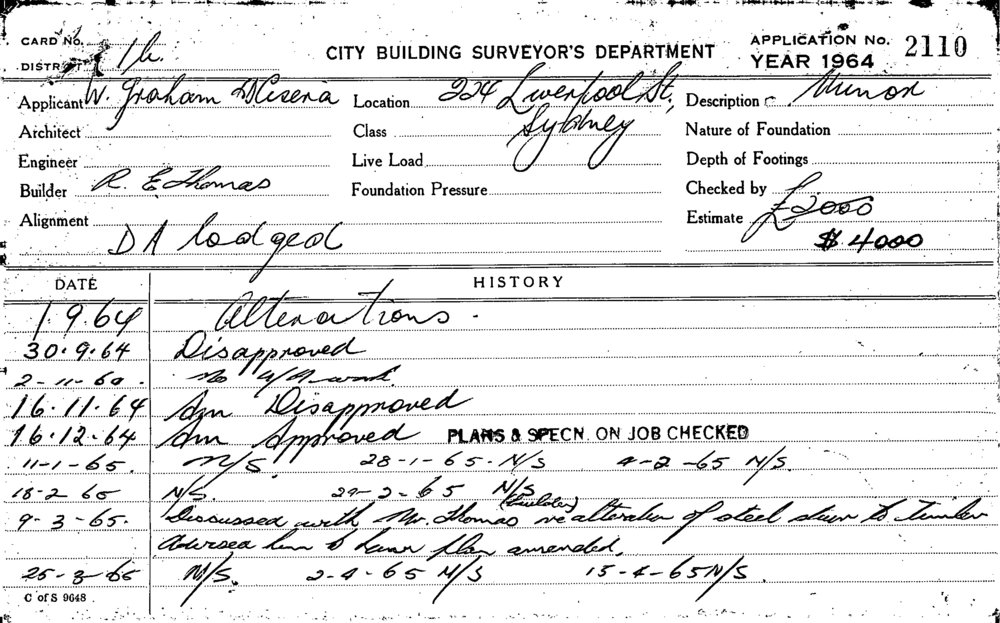 CARD No. CITY BUILDING SURVEYOR'S DEPARTMENT APPLICATION No. 2110
DISTRICT 1b. YEAR 1964
Applicant W. Graham Location 224 Liverpool St, Description Minor
Architect Class Sydney Nature of Foundation
Engineer Live Load Depth of Footings
Builder R. E Thomas Foundation Pressure Checked by
Alignment Estimate £2000
DA lodged $ 4000
DATE HISTORY
1.9.64 Alterations.
30.9.64 Disapproved
2-11-60. No work.
16.11.64 Am Disapproved
16.12.64 Am Approved PLANS & SPECN. ON JOB CHECKED
11-1-65. N/S 28-1-65. N/S 4-2-65 N/S.
18-2 65 N/S. 24-2-65 N/S
(builder)
9-3-65. Discussed with Mr. Thomas re alteration of steel to timber
Advised him to have plan amended.
25-3-65 N/S. 2-4-65 N/S 15-4-65 N/S.
C of S 9648